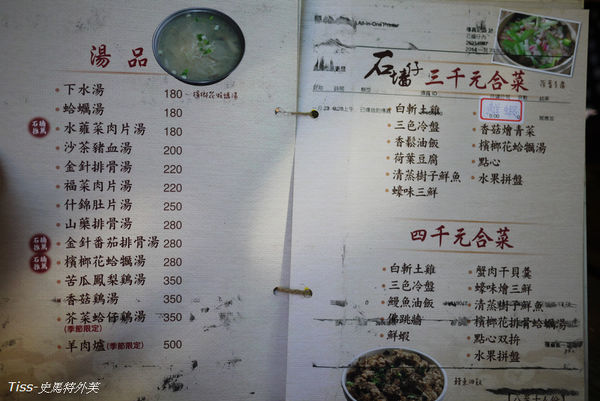 湯品
下水湯 180
~檳榔花蛤蠣湯
蛤蠣湯 180
石墻推薦
水蓮菜肉片湯 180
沙茶豬血湯 200
金針排骨湯 220
福菜肉片湯 220
什錦肚片湯 250
山藥排骨湯 280
石墻推薦
金針番茄排骨湯 280
石墻推薦
檳榔花蛤蠣湯 280
苦瓜鳳梨鷄湯 350
香菇鷄湯 350
芥菜蛤仔鷄湯 350
(季節限定)
羊肉爐(季節限定) 500
All-in-One Printer
石墻仔 三千元合菜
白斬土雞
三色冷盤
香鬆油飯
荷葉豆腐
清蒸樹子鮮魚
蠔味三鮮
香菇燴青菜
檳榔花蛤蠣湯
點心
水果拼盤
四千元合菜
白斬土雞
三色冷盤
鰻魚油飯
佛跳牆
鮮蝦
蟹肉干貝羹
蠔味燴三鮮
清蒸樹子鮮魚
檳榔花排骨蛤蠣湯
點心双拚
水果拼盤
Tiss-史馬特外芙